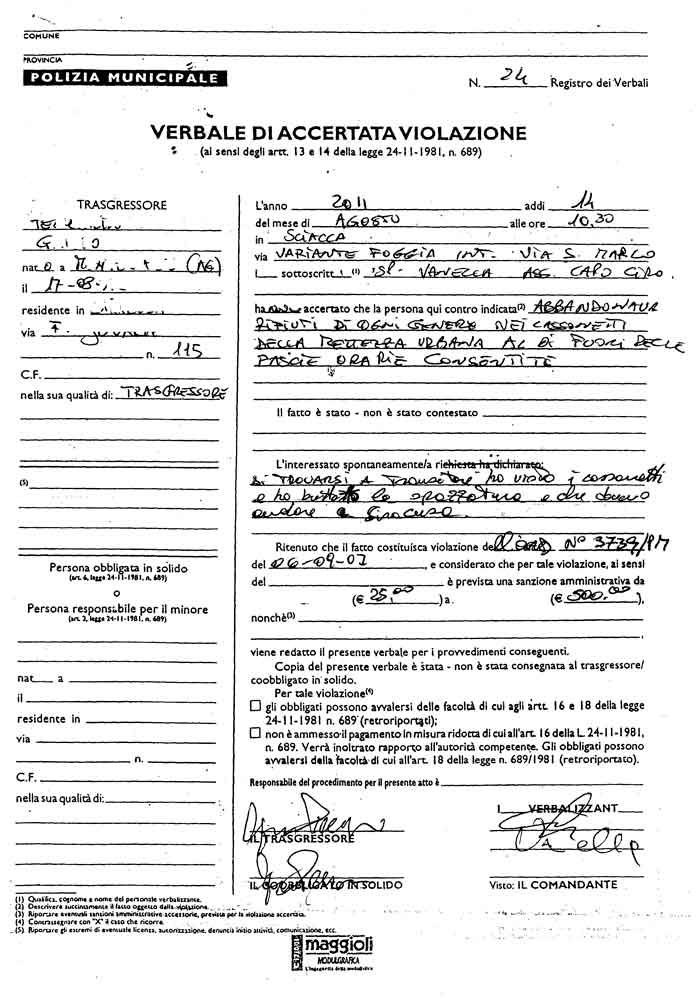 COMUNE
PROVINCIA
POLIZIA MUNICIPALE
N. 24 Registro dei Verbali
VERBALE DI ACCERTATA VIOLAZIONE
(ai sensi degli artt. 13 e 14 della legge 24-11-1981, n. 689)
TRASGRESSORE
nat O a (AG)
il 17-08-
residente in
via F.
n. 115
C.F.
nella sua qualità di: TRASGRESSORE
(5)
Persona obbligata in solido
(art. 6, legge 24-11-1981, n. 689)
o
Persona responsabile per il minore
(art. 2, legge 24-11-1981, n. 689)
nat a
il
residente in
via
n.
C.F.
nella sua qualità di:
L'anno 2011 addì 14
del mese di AGOSTO alle ore 10,30
in SCIACCA
via VARIANTE FOGGIA INT. VIA S. MARCO
I sottoscritt (1) VANELLA ASS. CAPO CIRO
ha accertato che la persona qui contro indicata(2) ABBANDONAVA
RIFIUTI DI OGNI GENERE NEI CASSONETTI
DELLA NETTEZZA URBANA AL DI FUORI DELLE
FASCIE ORARIE CONSENTITE
Il fatto è stato - non è stato contestato
L'interessato spontaneamente/a richiesta ha dichiarato:
DI TROVARSI A ho visto i cassonetti
e ho buttato la spazzatura e che devo
andare a Siracusa.
Ritenuto che il fatto costituisca violazione del N° 3739/PM
del 06-09-07, e considerato che per tale violazione, ai sensi
del è prevista una sanzione amministrativa da
(€ 25,00) a. (€ 500,00),
nonchè(3)
viene redatto il presente verbale per i provvedimenti conseguenti.
Copia del presente verbale è stata - non è stata consegnata al trasgressore/
coobbligato in solido.
Per tale violazione(4)
gli obbligati possono avvalersi delle facoltà di cui agli artt. 16 e 18 della legge
24-11-1981 n. 689 (retroriportati);
non è ammesso il pagamento in misura ridotta di cui all'art. 16 della L. 24-11-1981,
n. 689. Verrà inoltrato rapporto all'autorità competente. Gli obbligati possono
avvalersi della facoltà di cui all'art. 18 della legge n. 689/1981 (retroriportato).
Responsabile del procedimento per il presente atto è
IL TRASGRESSORE
I VERBALIZZANT
IL COOBBLIGATO IN SOLIDO
Visto: IL COMANDANTE
(1) Qualifica, cognome e nome del personale verbalizzante.
(2) Descrivere succintamente il fatto oggetto della violazione.
(3) Riportare eventuali sanzioni amministrative accessorie, previste per la violazione accertata.
(4) Contrassegnare con "X" il caso che ricorre.
(5) Riportare gli estremi di eventuale licenza, autorizzazione, denuncia inizio attività, comunicazione, ecc.
maggioli
MODULGRAFICA